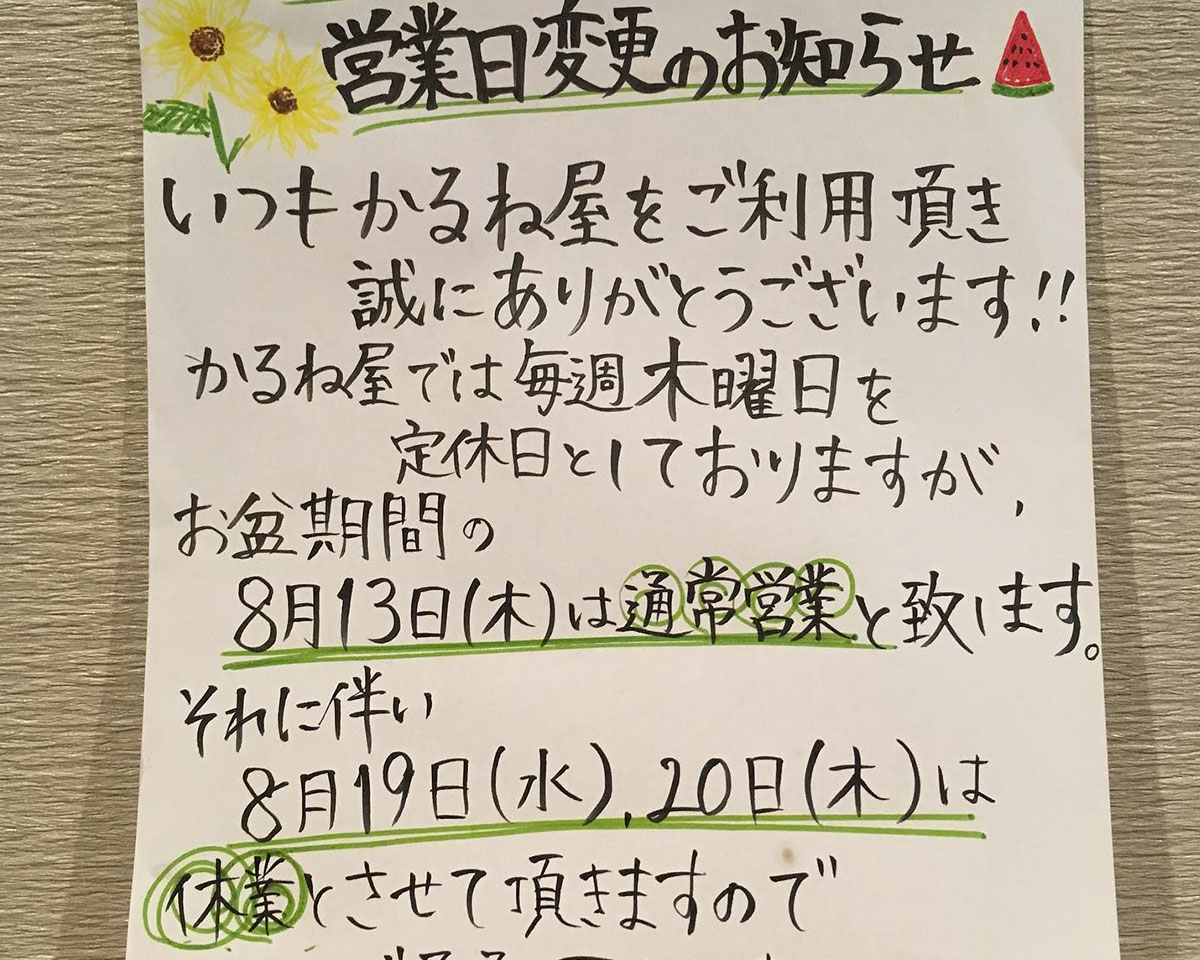 営業日変更のお知らせ
いつもかるね屋をご利用頂き
誠にありがとうございます!!
かるね屋では毎週木曜日を
定休日としておりますが,
お盆期間の
8月13日(木)は通常営業と致します。
それに伴い
8月19日(水),20日(木)は
休業とさせて頂きますので